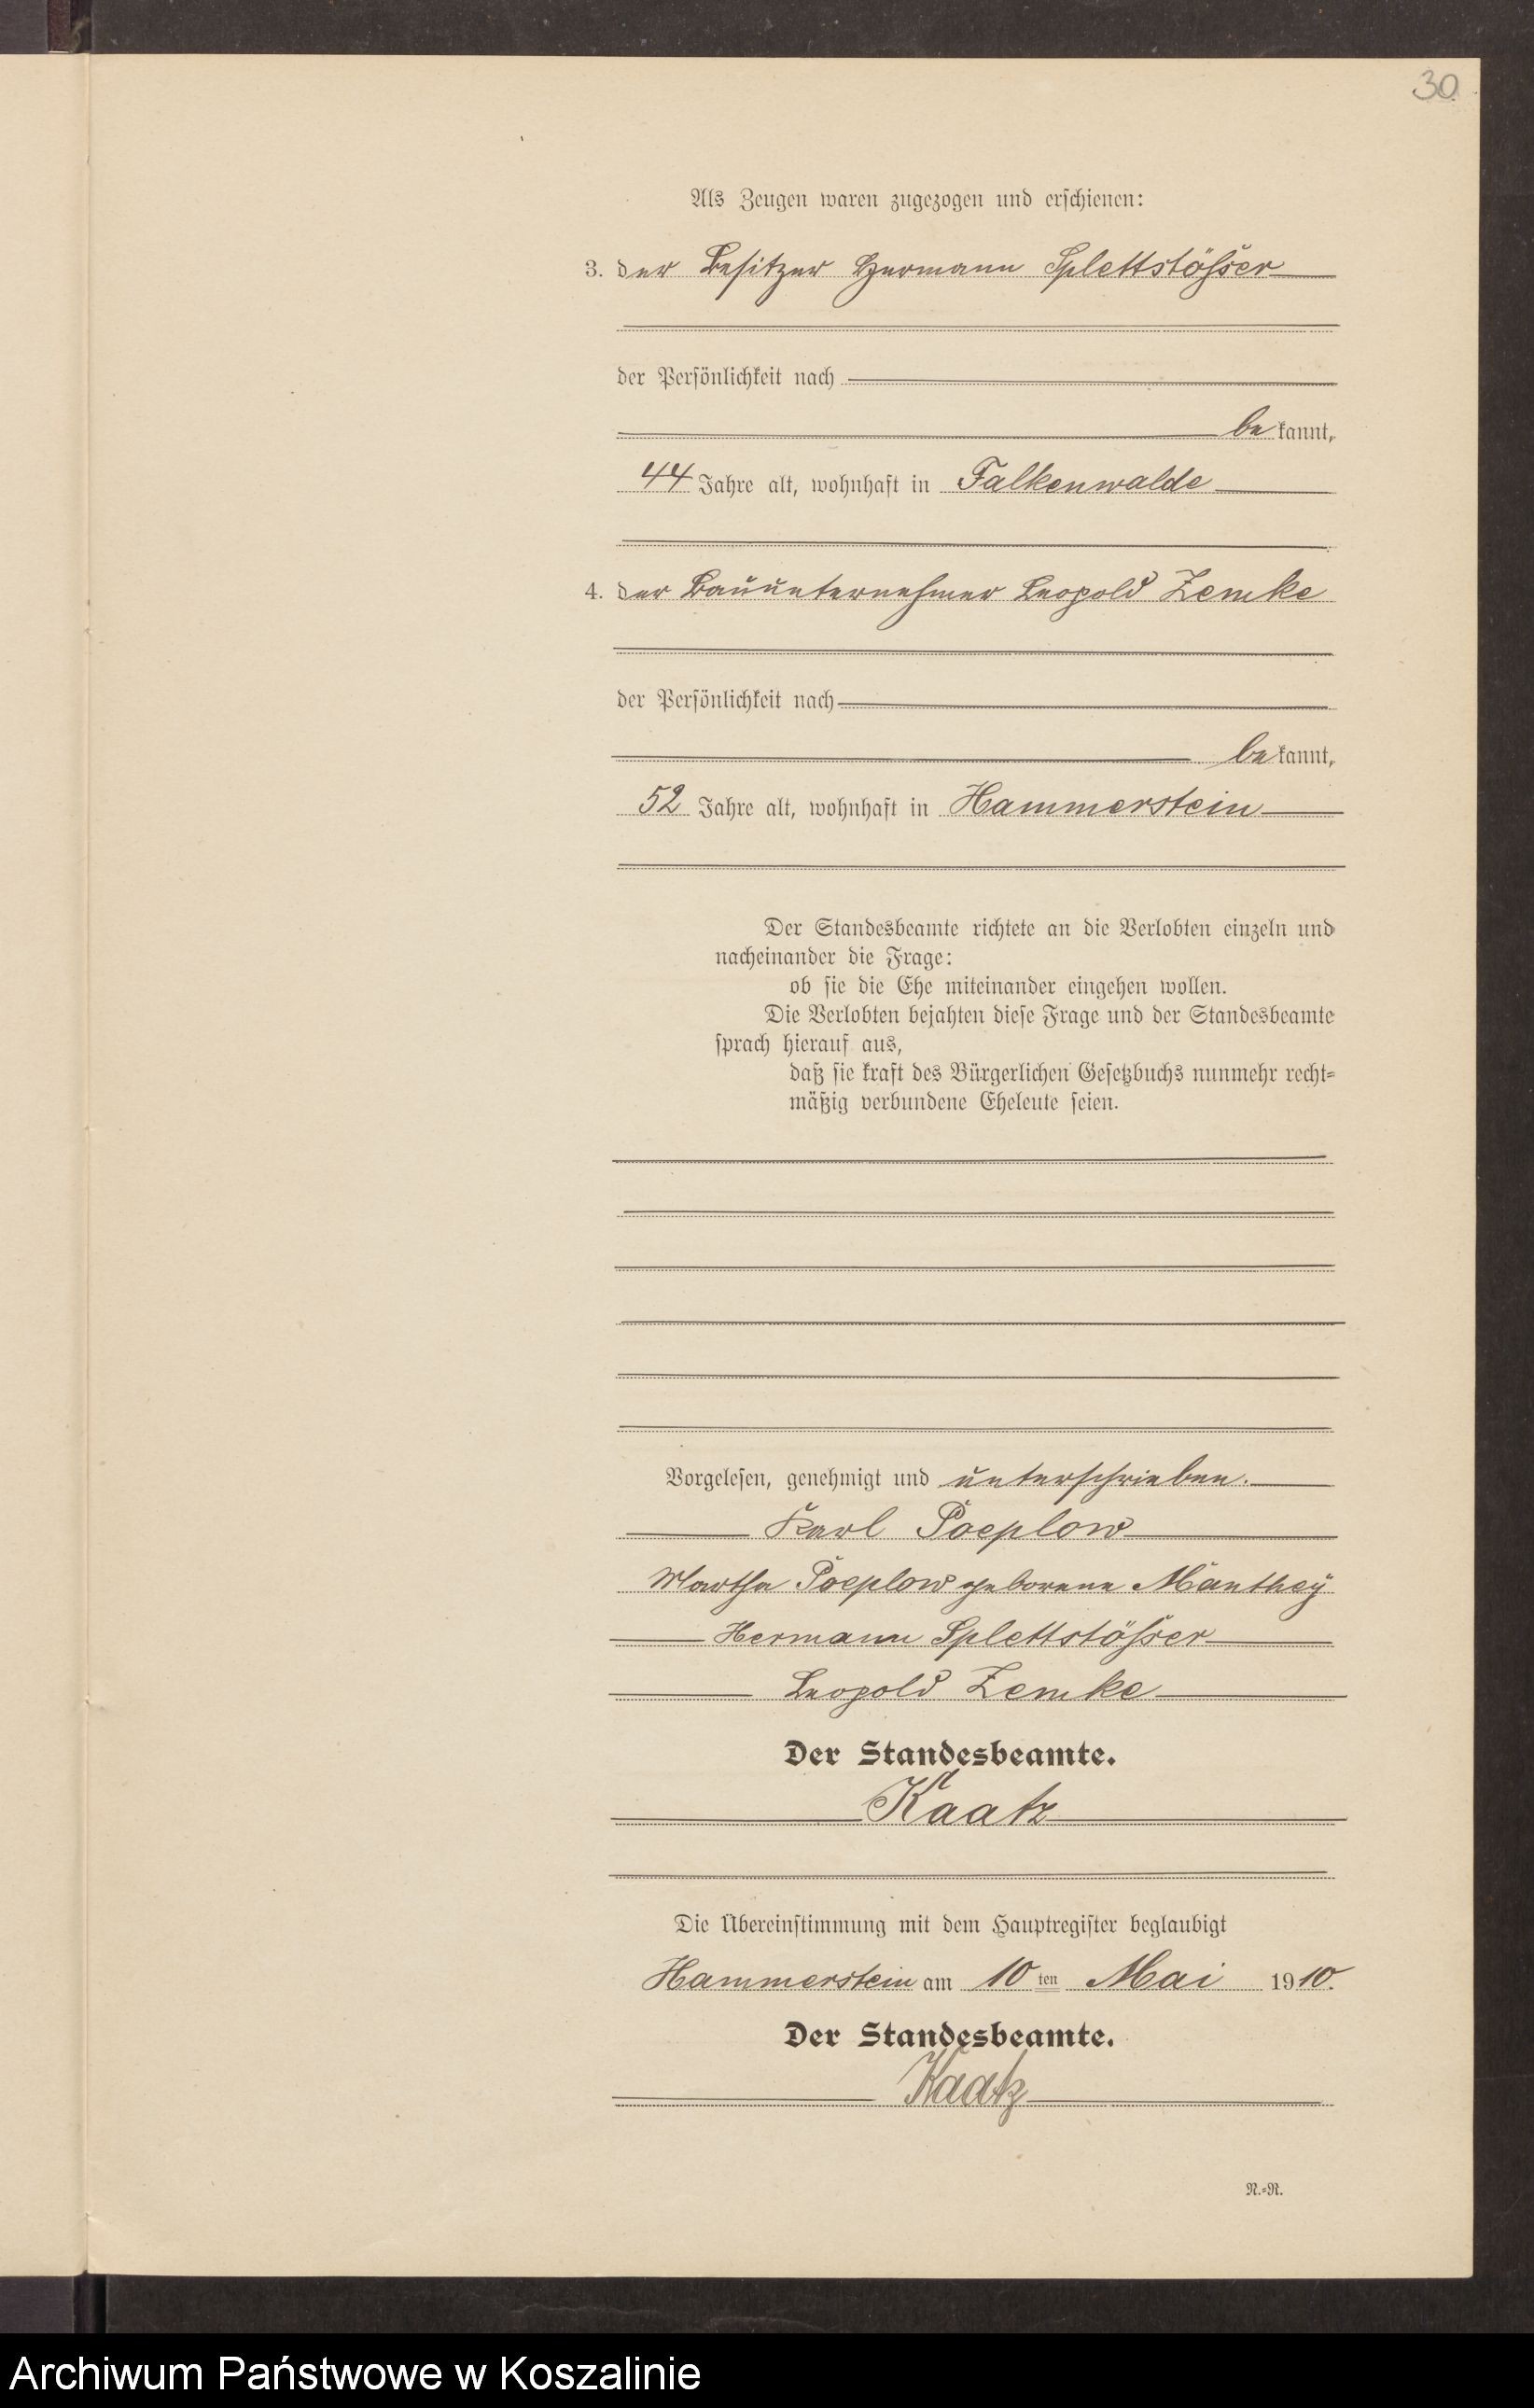 30
Als Zeugen waren zugezogen und erschienen:
3. der Besitzer Hermann Splettstößer
der Persönlichkeit nach
be kannt,
44 Jahre alt, wohnhaft in Falkenwalde
4. der Bauunternehmer Leopold Zemke
der Persönlichkeit nach
be kannt,
52 Jahre alt, wohnhaft in Hammerstein
Der Standesbeamte richtete an die Verlobten einzeln und
nacheinander die Frage:
ob sie die Ehe miteinander eingehen wollen.
Die Verlobten bejahten diese Frage und der Standesbeamte
sprach hierauf aus,
daß sie kraft des Bürgerlichen Gesetzbuchs nunmehr recht-
mäßig verbundene Eheleute seien.
Vorgelesen, genehmigt und unterschrieben.
Karl Poeplow
Martha Poeplow geborene Manthey
Hermann Splettstößer
Leopold Zemke
Der Standesbeamte.
Kaatz
Die Übereinstimmung mit dem Hauptregister beglaubigt
Hammerstein am 10 ten Mai 1910.
Der Standesbeamte.
Kaatz
N.-R.
Archiwum Państwowe w Koszalinie